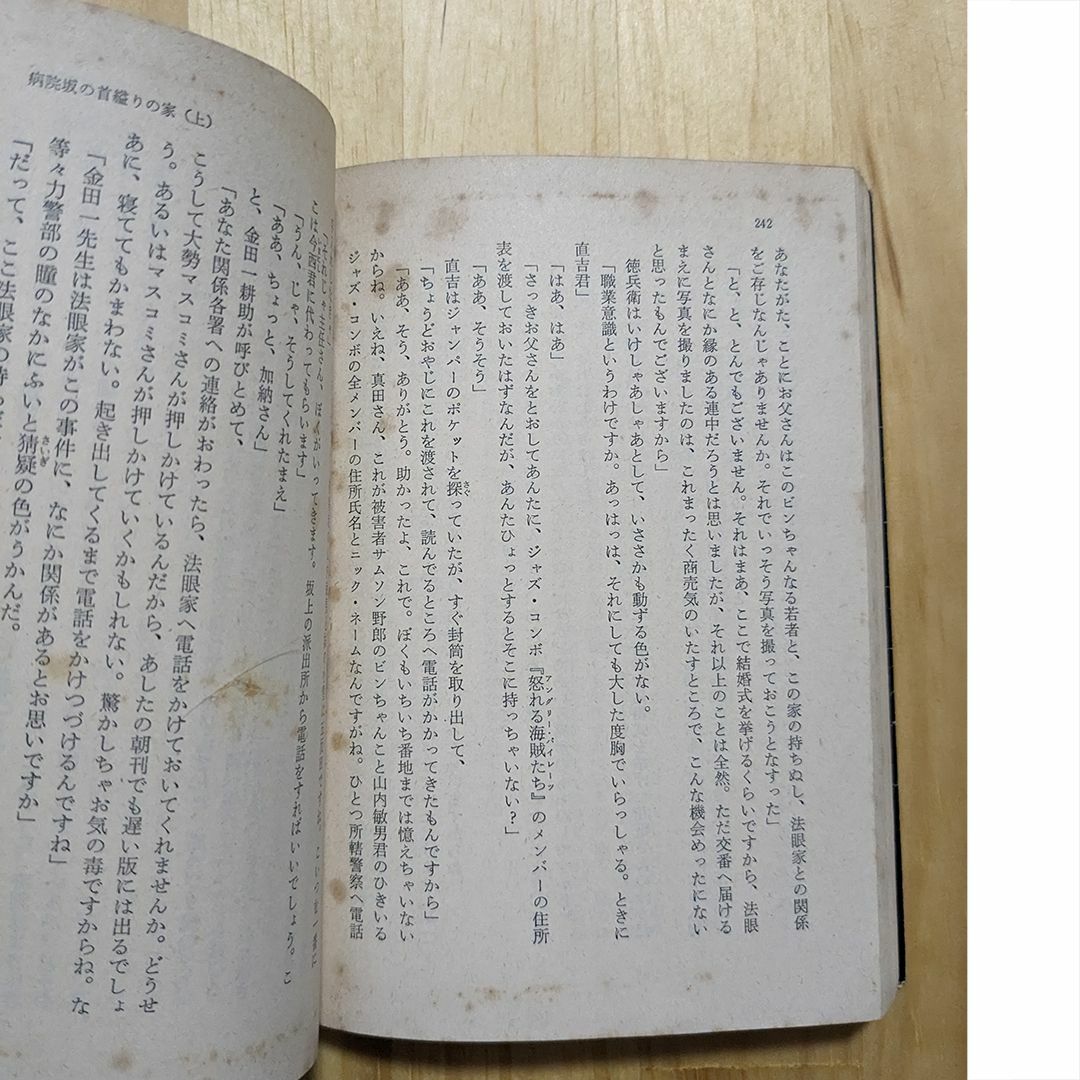 242
あなたがた、ことにお父さんはこのビンちゃんなる若者と、この家の持ちぬし、法眼家との関係
をご存じなんじゃありませんか。それでいっそう写真を撮っておこうとなすった」
「と、と、とんでもございません。それはまあ、ここで結婚式を挙げるくらいですから、法眼
さんとなにか縁のある連中だろうとは思いましたが、それ以上のことは全然。ただ交番へ届ける
まえに写真を撮りましたのは、これまったく商売気のいたすところで、こんな機会めったにない
と思ったもんでございますから」
徳兵衛はいけしゃあしゃあとして、いささかも動ずる色がない。
「職業意識というわけですか。あっはっは、それにしても大した度胸でいらっしゃる。ときに
直吉君」
「はあ、はあ」
「さっきお父さんをとおしてあんたに、ジャズ・コンボ『怒れる海賊たち』のメンバーの住所
アングリー・パイレーツ
表を渡しておいたはずなんだが、あんたひょっとするとそこに持っちゃいない？」
「ああ、そうそう」
直吉はジャンパーのポケットを探っていたが、すぐ封筒を取り出して、
さぐ
「ちょうどおやじにこれを渡されて、読んでるところへ電話がかかってきたもんですから」
「ああ、そう、ありがとう。助かったよ、これで。ぼくもいちいち番地までは憶えちゃいない
からね。いえね、真田さん、これが被害者サムソン野郎のビンちゃんこと山内敏男君のひきいる
ジャズ・コンボの全メンバーの住所氏名とニック・ネームなんですがね。ひとつ所轄警察へ電話
病院坂の首縊りの家（上）
「それじゃ主任さん、ぼくがいってきます。坂上の派出所から電話をすればいいでしょう。こ
こは今西君に代わってもらいます」
「うん、じゃ、そうしてくれたまえ」
「ああ、ちょっと、加納さん」
と、金田一耕助が呼びとめて、
「あなた関係各署への連絡がおわったら、法眼家へ電話をかけておいてくれませんか。どうせ
こうして大勢マスコミさんが押しかけているんだから、あしたの朝刊でも遅い版には出るでしょ
う。あるいはマスコミさんが押しかけていくかもしれない。驚かしちゃお気の毒ですからね。な
あに、寝ててもかまわない。起き出してくるまで電話をかけつづけるんですね」
「金田一先生は法眼家がこの事件に、なにか関係があるとお思いですか」
等々力警部の瞳のなかにふいと猜疑の色がうかんだ。
さいぎ
「だって、ここ法眼家の持